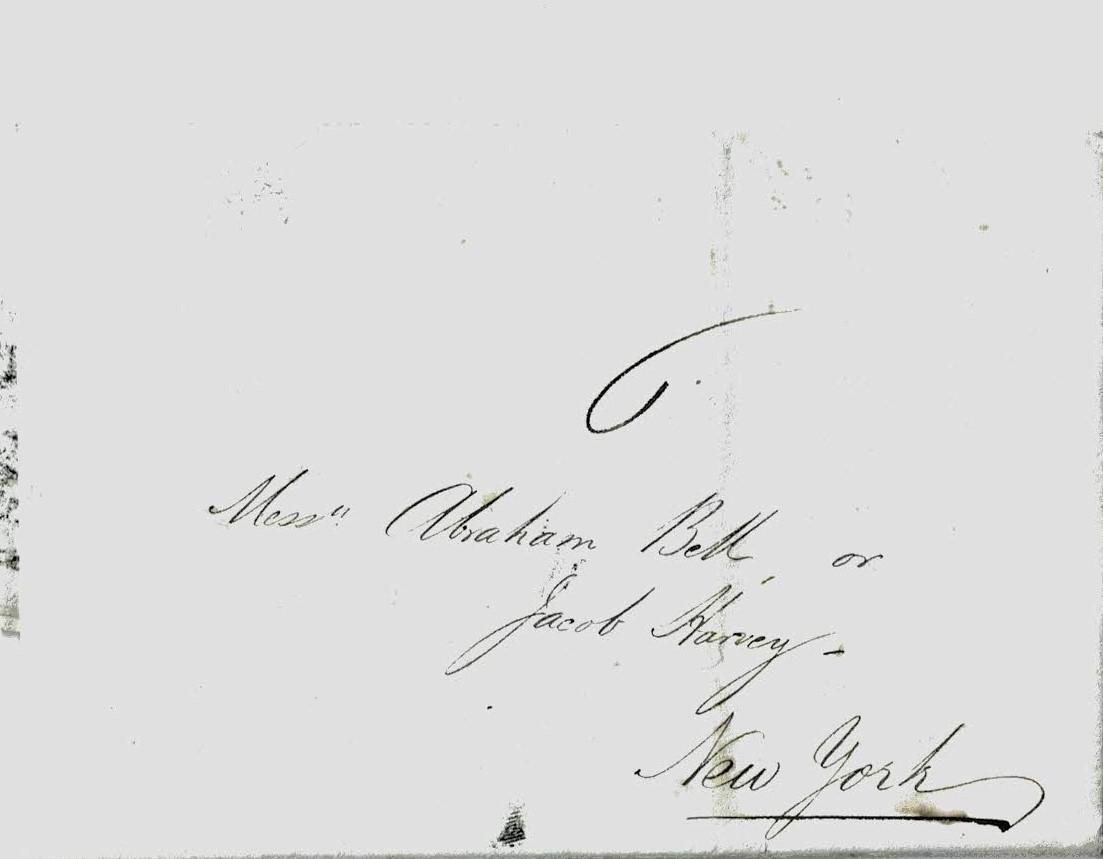 6
Mess" Abraham Bell, or
Jacob Harvey -
New York